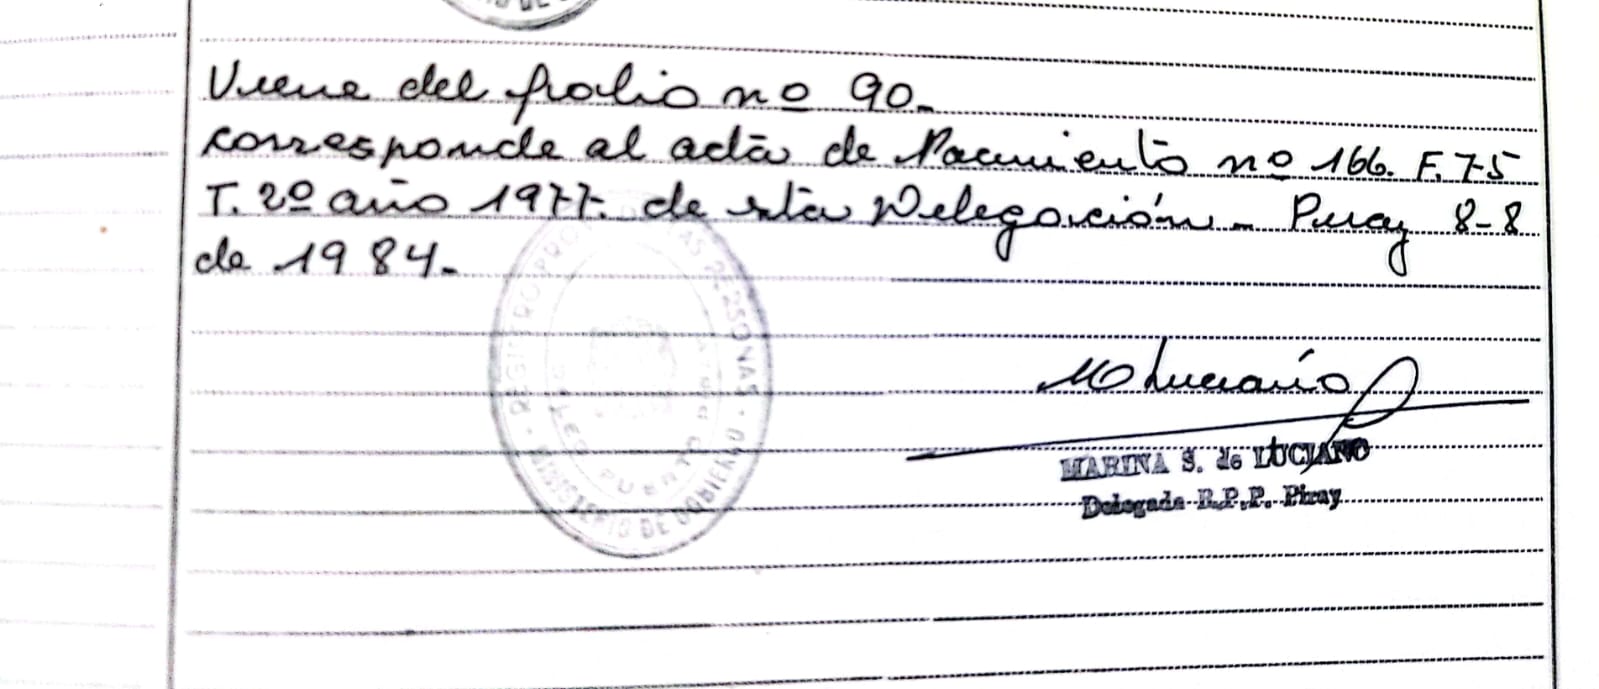 Viene del folio nº 90.-
corresponde al acta de Nacimiento nº 166. F. 75
T. 2º año 1977. de esta Delegación - Piray 8-8
de 1984.-
REGISTRO PROV. DE LAS PERSONAS
MINISTERIO DE GOBIERNO
PUERTO
M Luciano
MARINA S. de LUCIANO
Delegada R.P.P. Piray